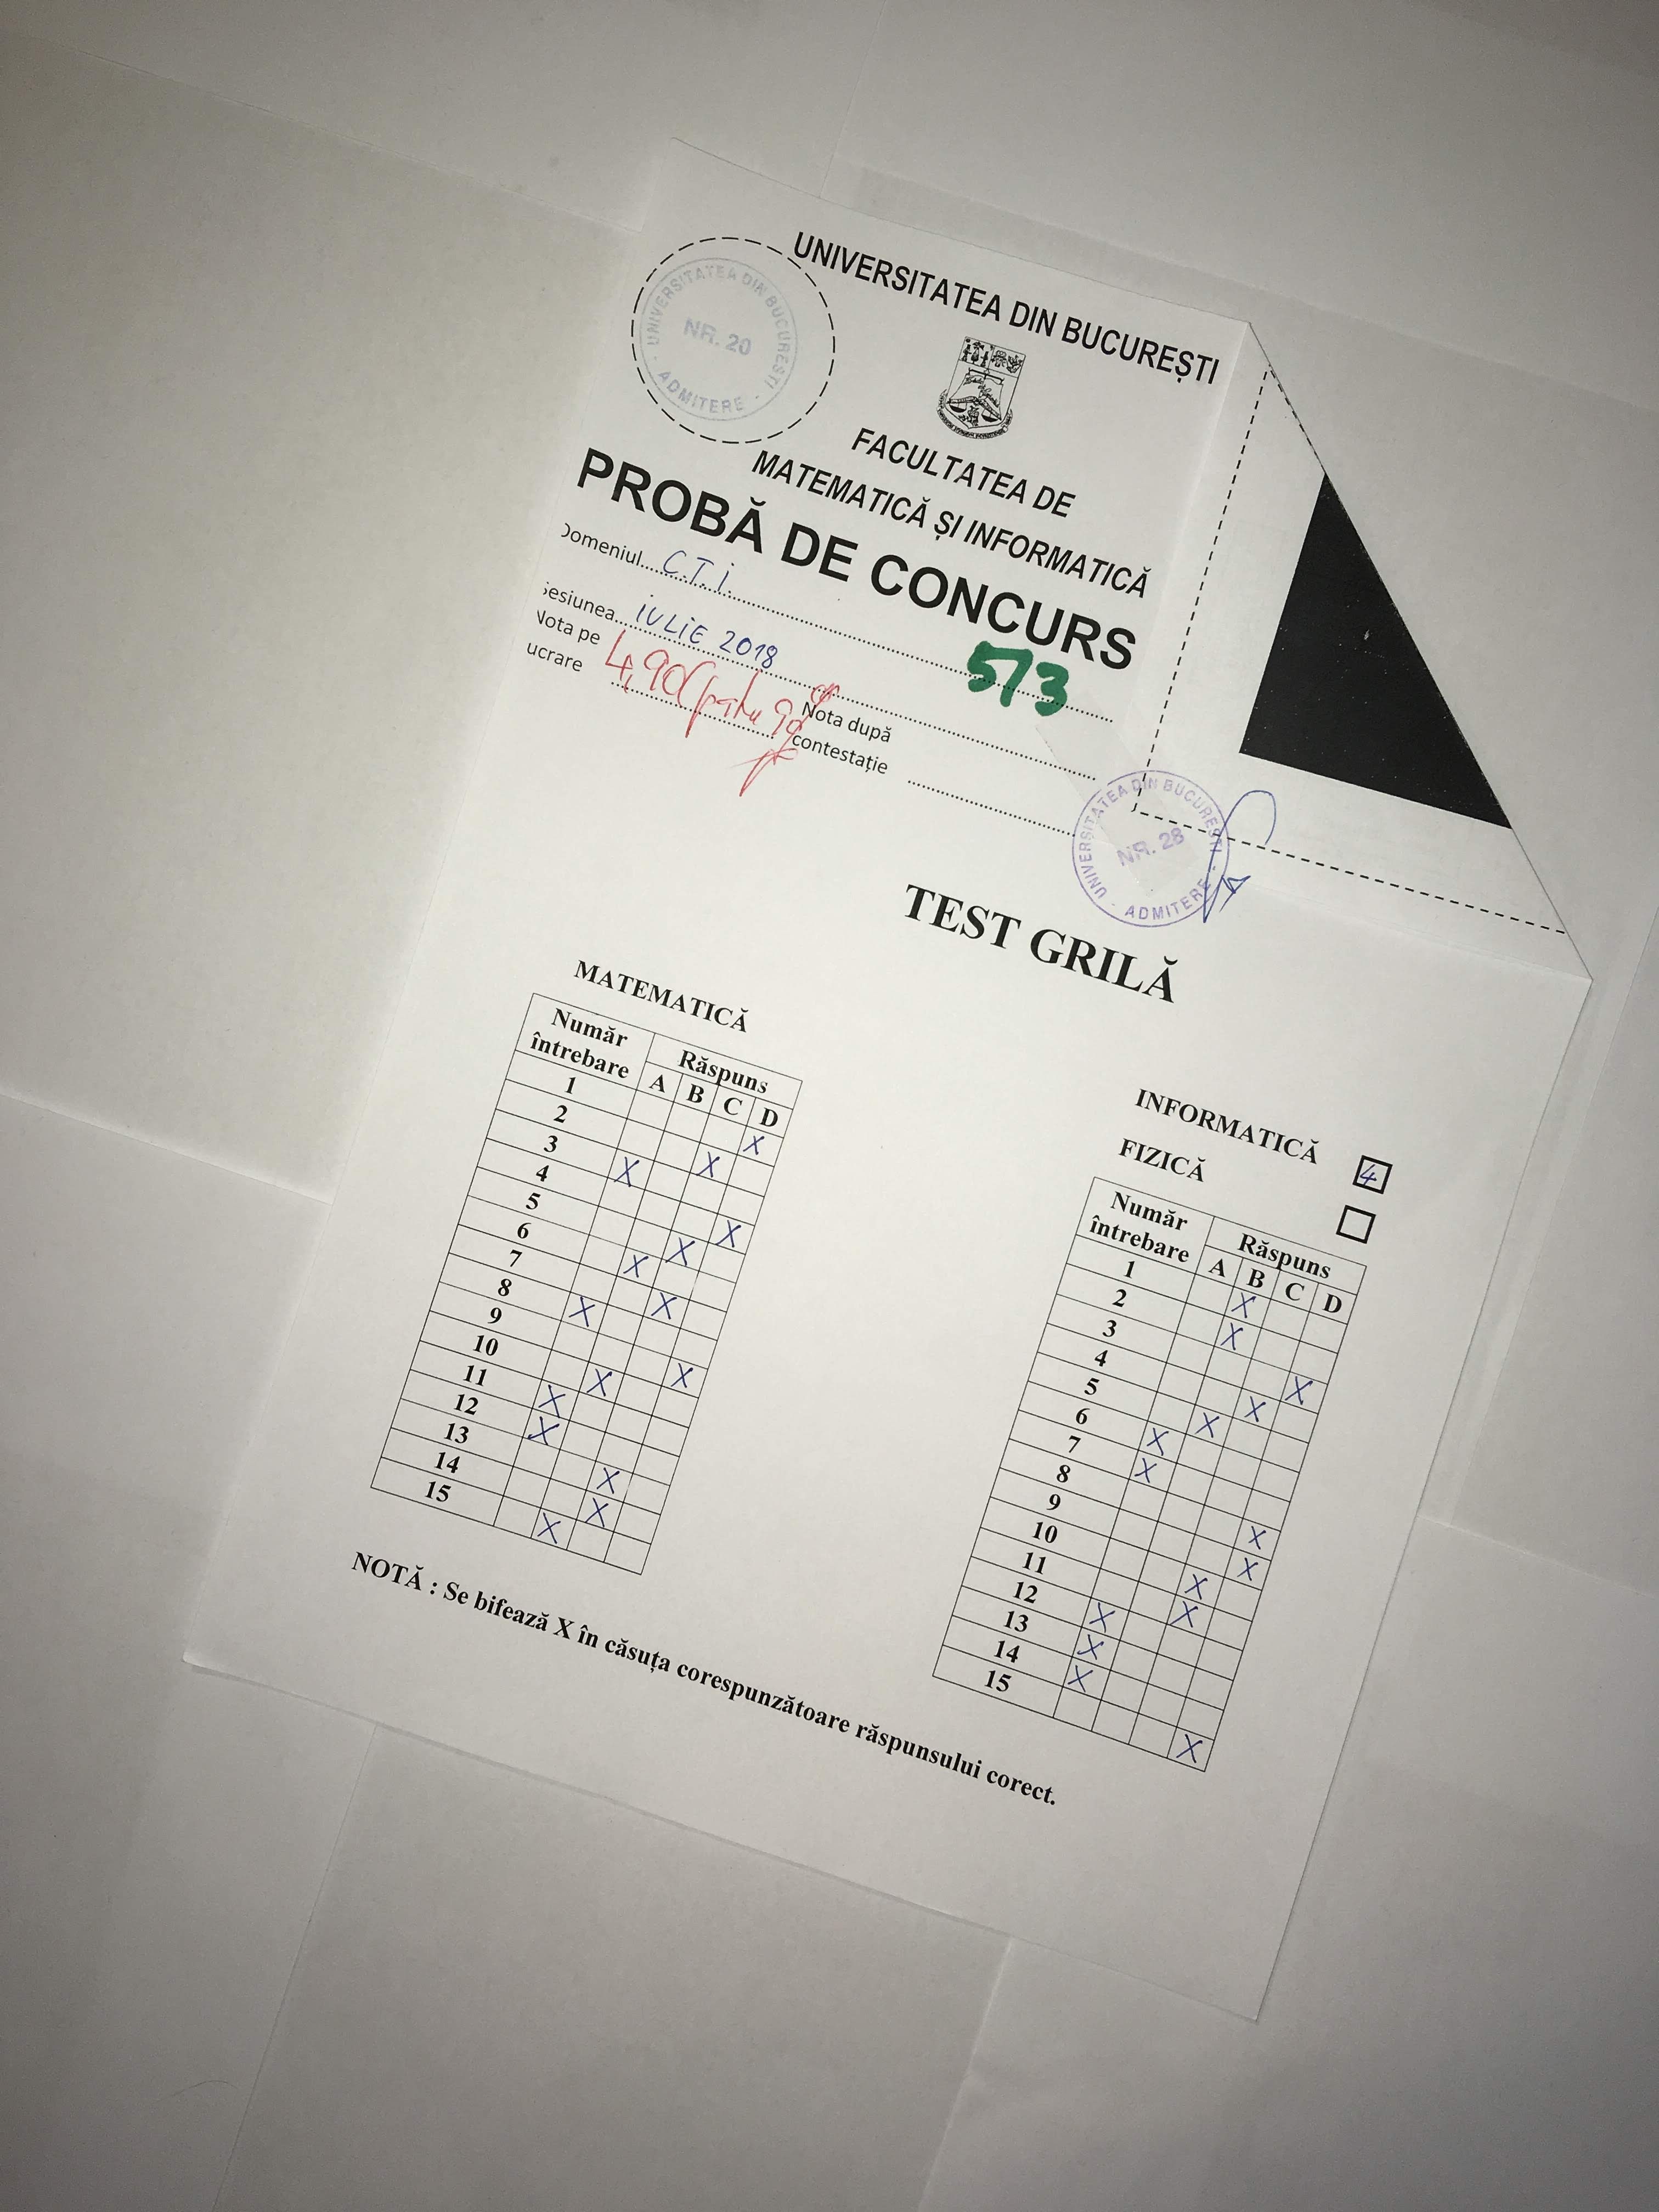 UNIVERSITATEA DIN BUCUREȘTI
UNIVERSITATEA DIN BUCUREȘTI - ADMITERE -
NR. 20
FACULTATEA DE
MATEMATICĂ ȘI INFORMATICĂ
PROBĂ DE CONCURS
Domeniul C.T.I.
573
Sesiunea IULIE 2018
Nota pe
lucrare 4,90 (patru 90
Nota după
contestație
UNIVERSITATEA DIN BUCUREȘTI - ADMITERE -
NR. 28
TEST GRILĂ
MATEMATICĂ
Număr
întrebare
Răspuns
A B C D
1 X
2 X
3 X
4 X
5 X
6 X
7 X
8 X
9 X
10 X
11 X
12 X
13 X
14 X
15 X
INFORMATICĂ 4
FIZICĂ
Număr
întrebare
Răspuns
A B C D
1 X
2 X
3 X
4 X
5 X
6 X
7 X
8 X
9 X
10 X
11 X
12 X
13 X
14 X
15 X
NOTĂ : Se bifează X în căsuța corespunzătoare răspunsului corect.